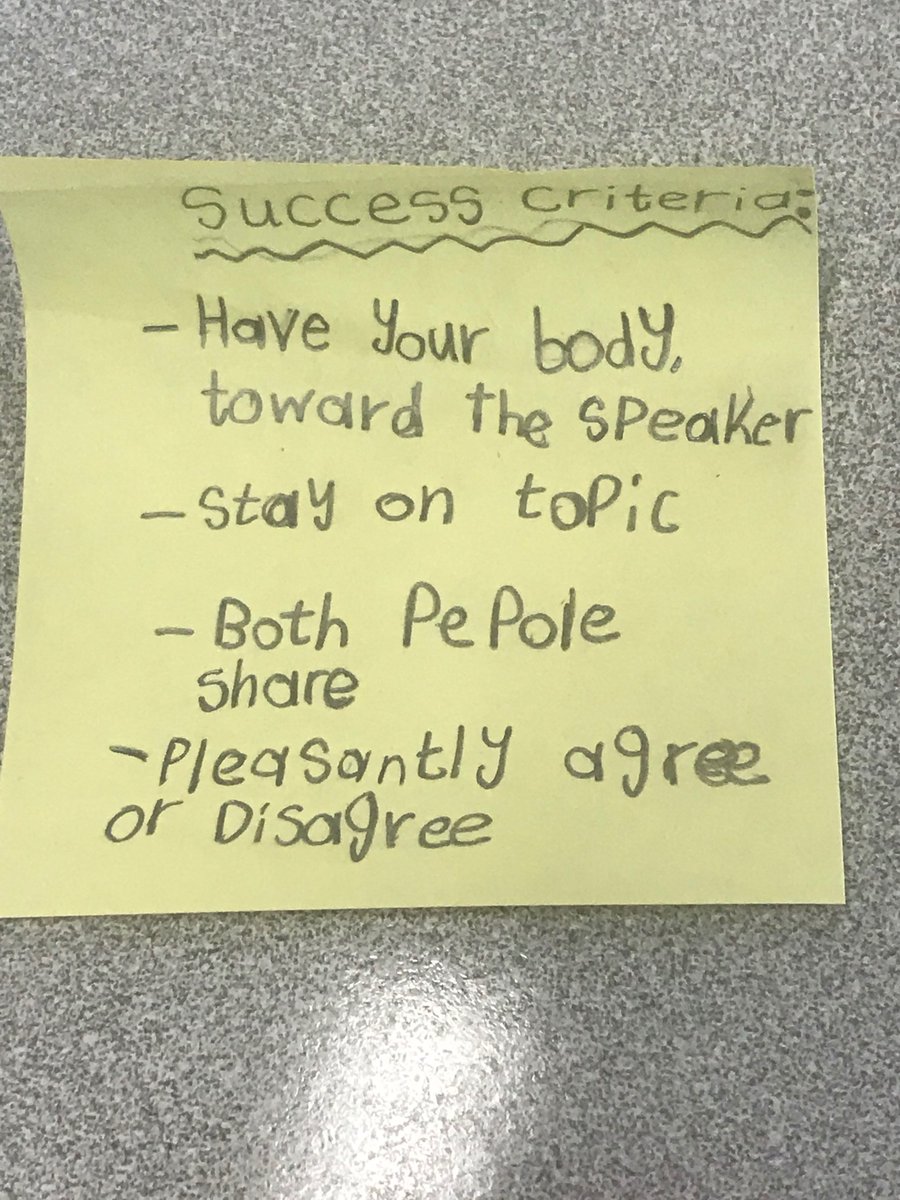 Success Criteria:
- Have your body,
toward the speaker
- Stay on topic
- Both Pepole
share
- Pleasantly agree
or Disagree